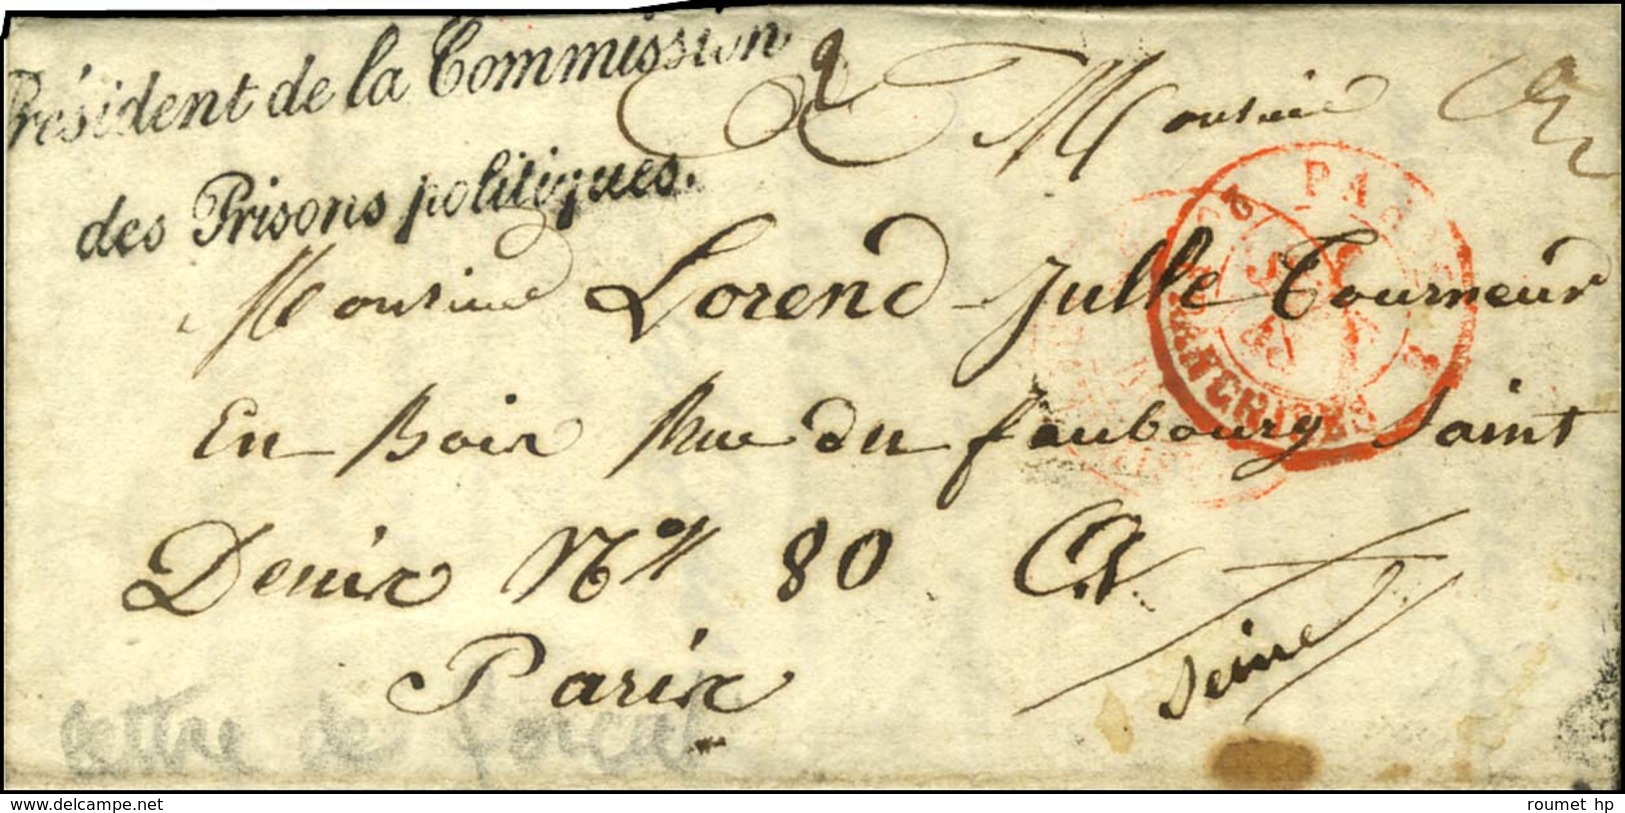 Président de la Commission
des Prisons politiques.
à Monsieur
Monsieur Lorend Julle Tourneur
En Boix Rue du faubourg Saint
Denix N° 80 A
Parix
Seine
PARIS
FRANCHISES
lettre de forcat
www.delcampe.net
roumet hp